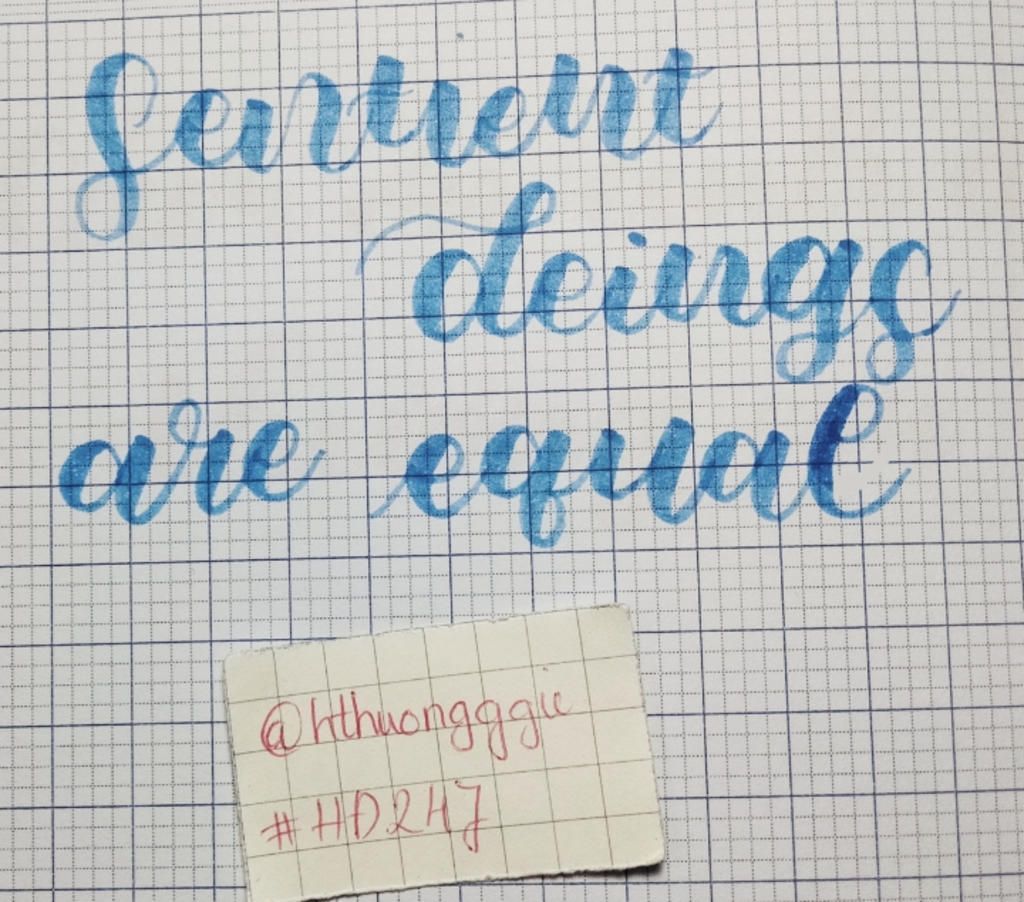 Sentient
deings
are equal
@hthuongggie
#HD247